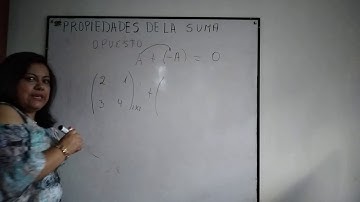 PROPIEDADES DE LA SUMA
OPUESTO
A + (-A) = 0
( 2 1 ) + (
( 3 4 )